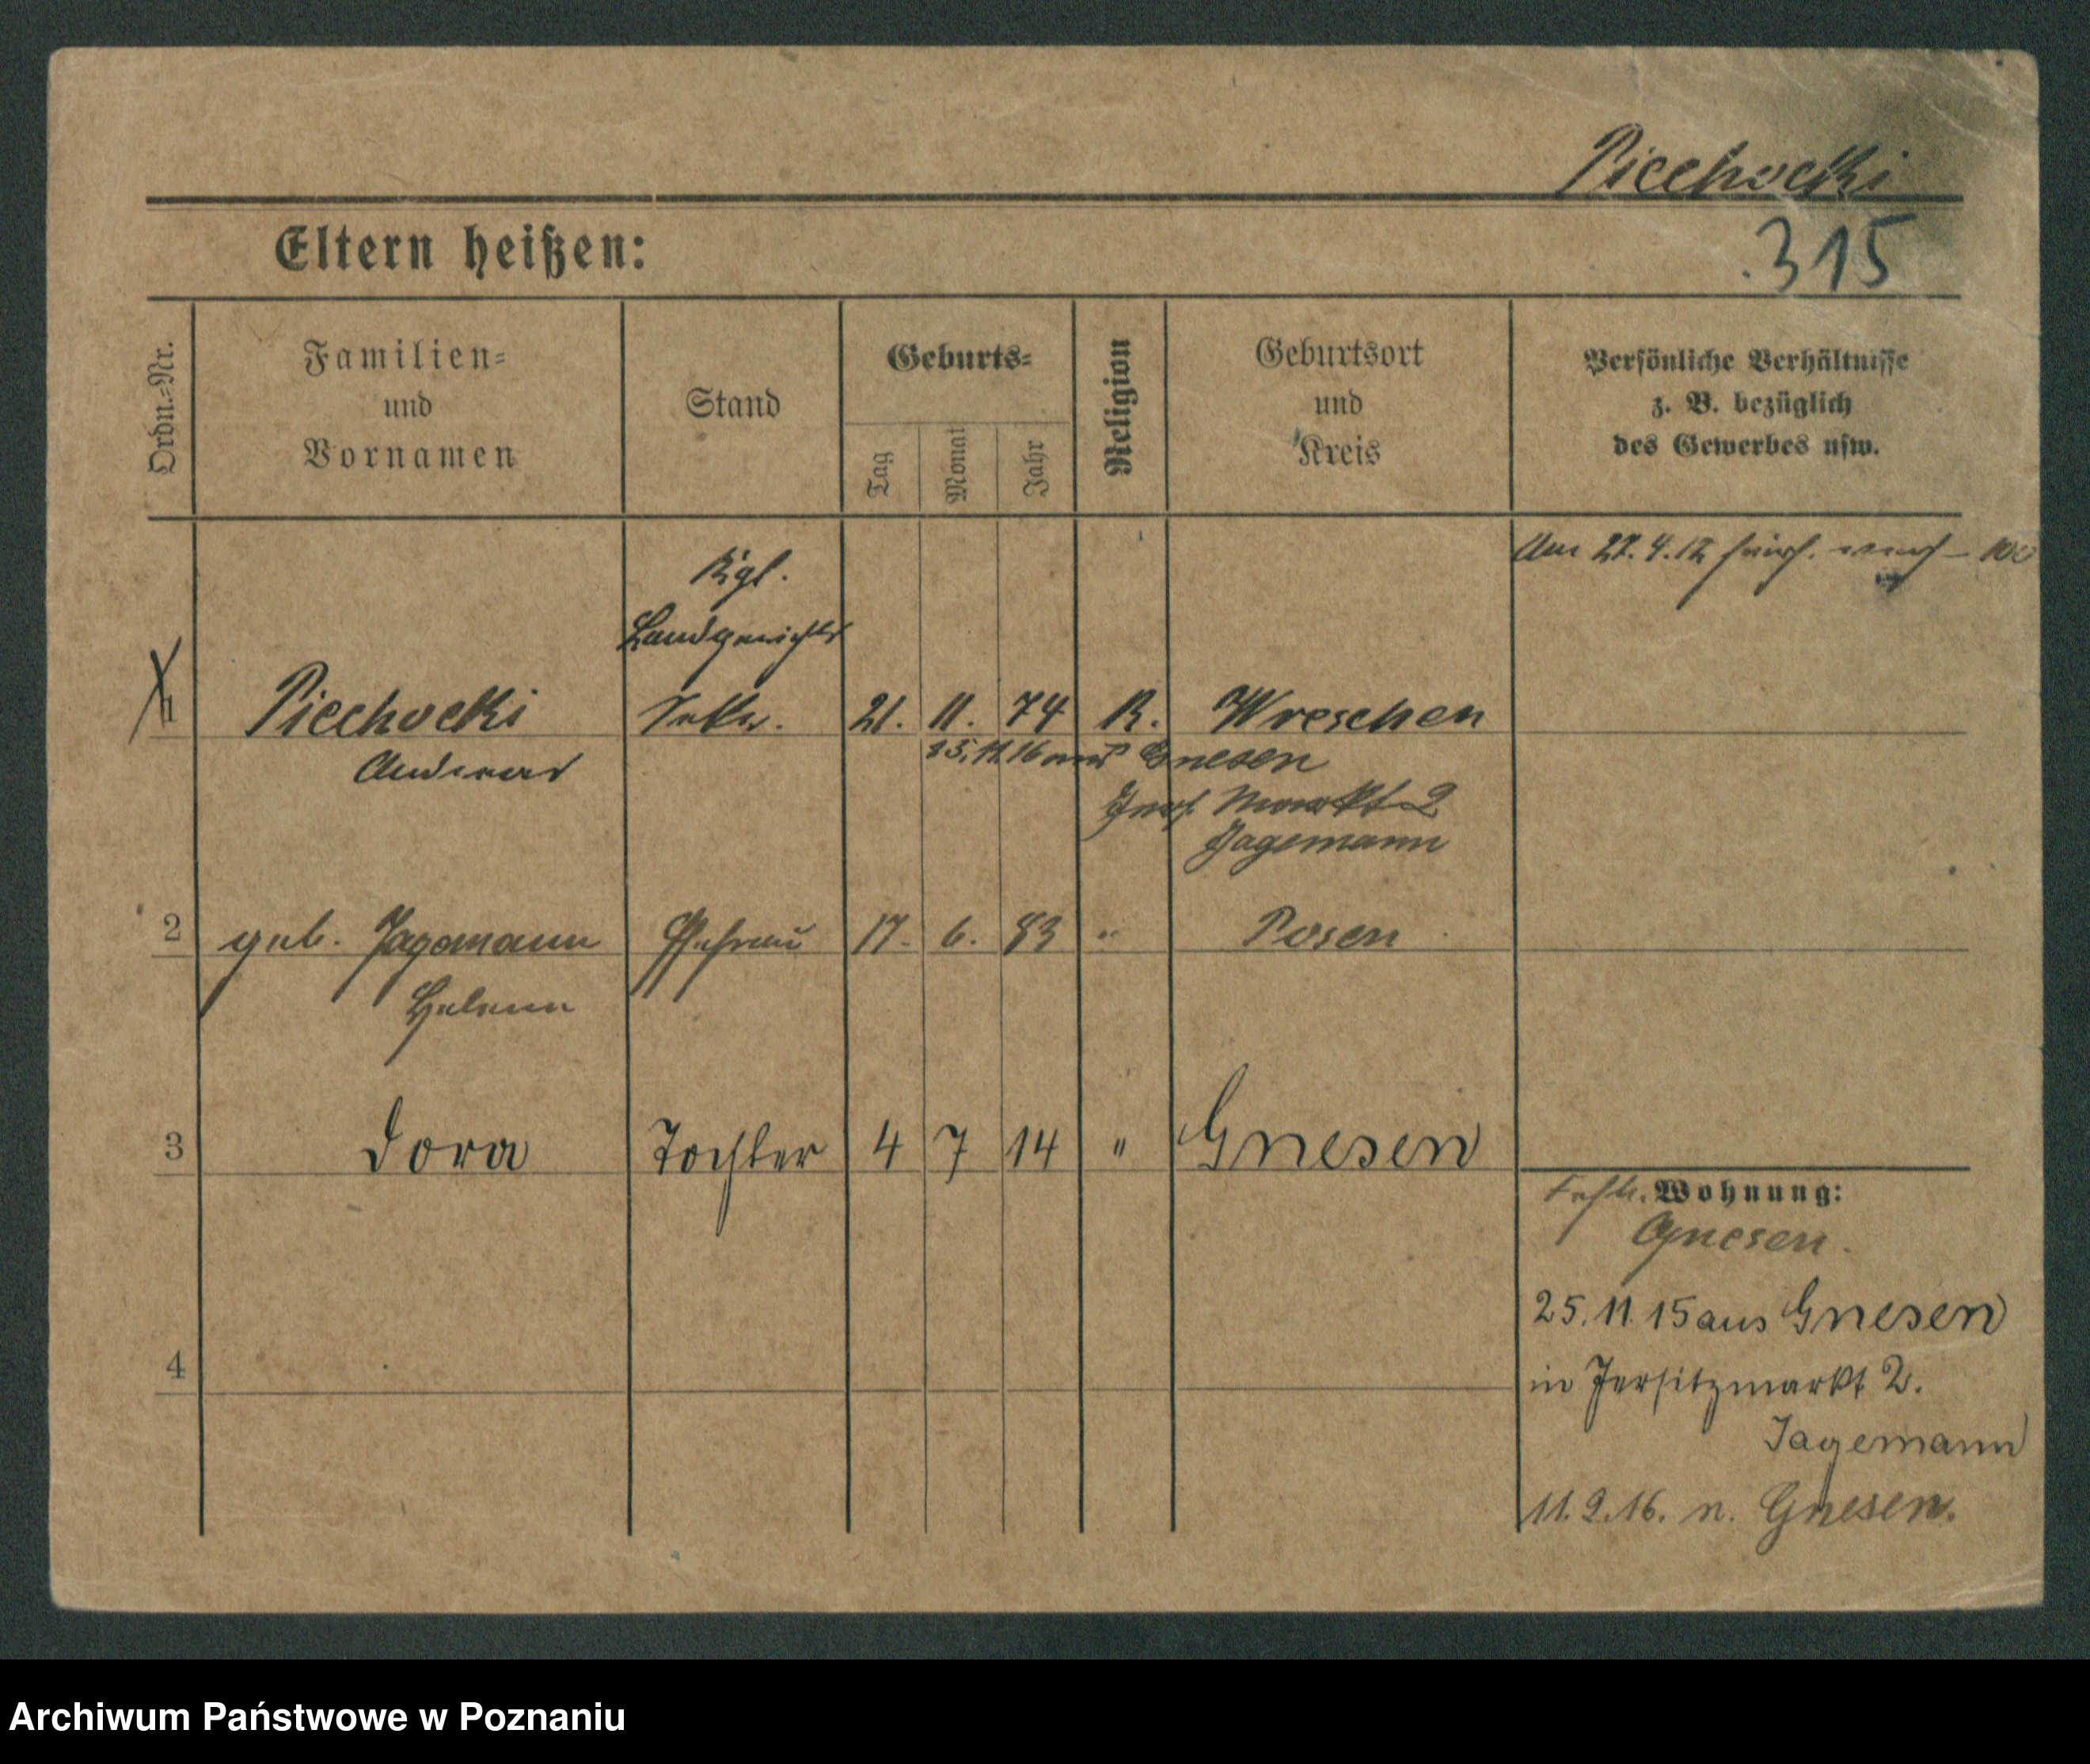 Piechocki
Eltern heißen:
315
Ordn.=Nr.
Familien=
und
Vornamen
Stand
Geburts=
Tag
Monat
Jahr
Religion
Geburtsort
und
Kreis
Persönliche Verhältnisse
z. B. bezüglich
des Gewerbes usw.
Am 27.4.12
Kgl.
Landgerichts
1 Piechocki Sekr. 21. 11. 74 R. Wreschen
Andreas
25.11.16 aus Gnesen
Markt 2
Jagemann
2 geb. Jagemann Ehefrau 17. 6. 83 " Posen
Helene
3 Dora Tochter 4 7 14 " Gnesen
Wohnung:
Gnesen.
25.11.15 aus Gnesen
4
in Jersitzmarkt 2.
Jagemann
11.2.16. n. Gnesen.
Archiwum Państwowe w Poznaniu